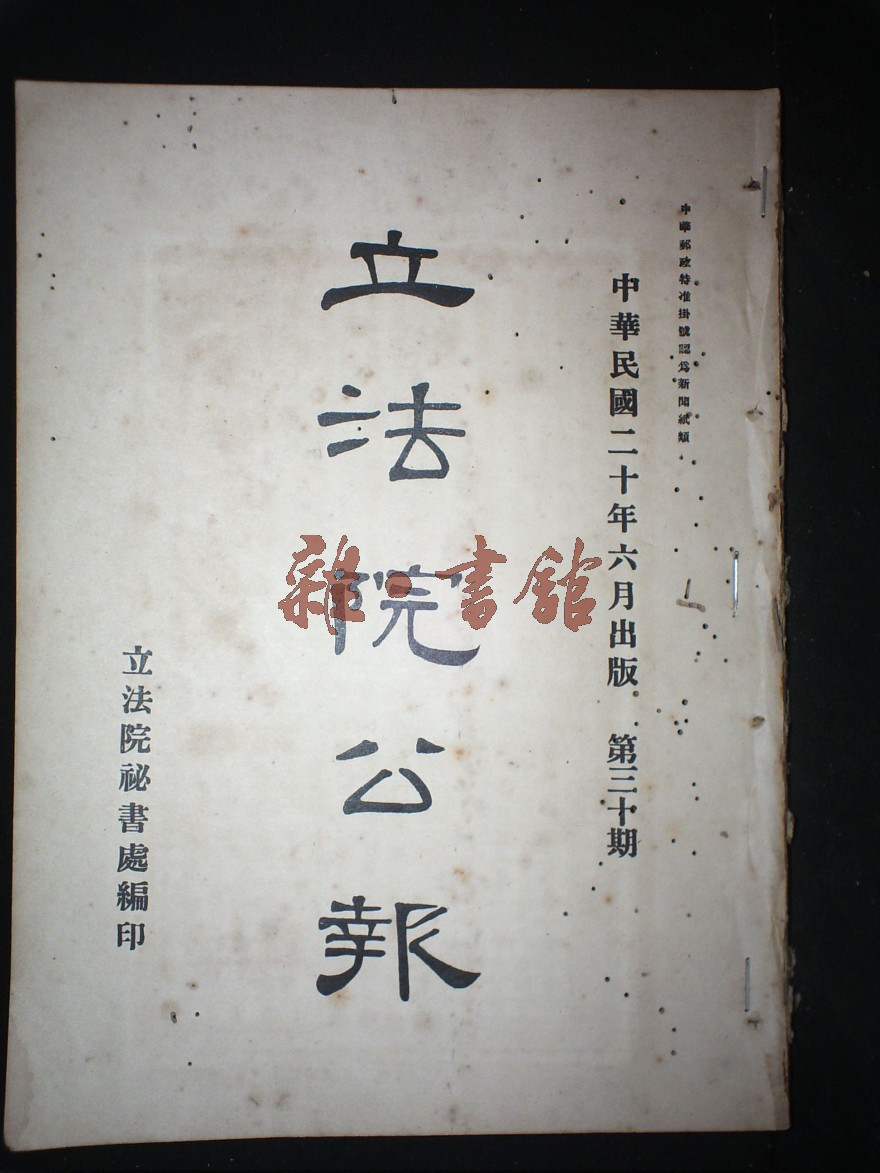 中華郵政特准掛號認爲新聞紙類
中華民國二十年六月出版 第三十期
立法院公報
雜·書館
立法院祕書處編印